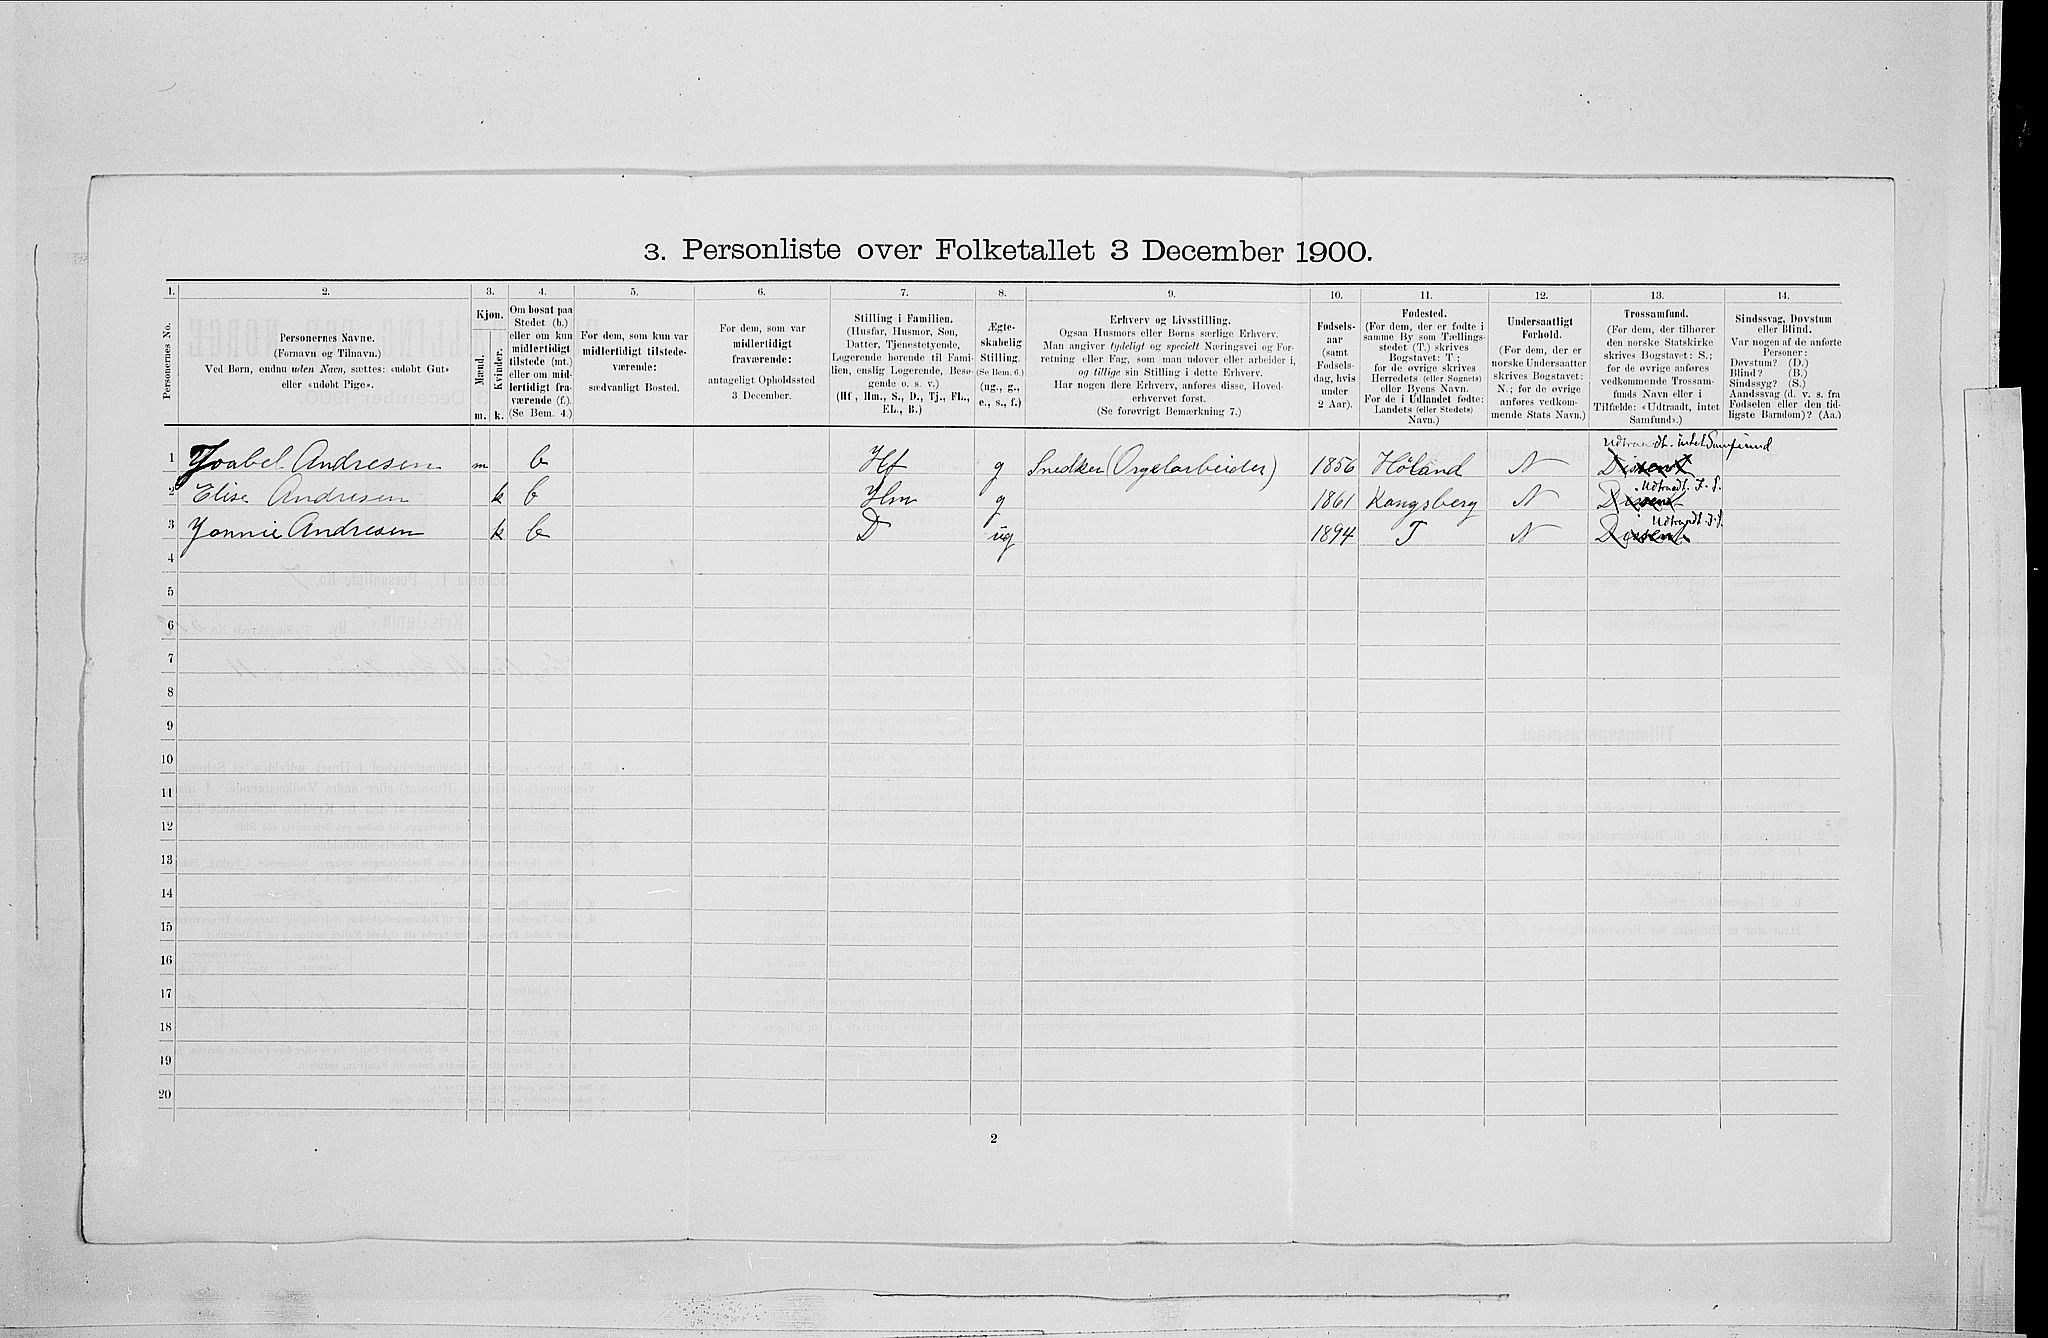 3. Personliste over Folketallet 3 December 1900.
1. 2. 3. 4. 5. 6. 7. 8. 9. 10. 11. 12. 13. 14.
Personernes No.
Personernes Navne.
(Fornavn og Tilnavn.)
Ved Børn, endnu uden Navn, sættes: «udøbt Gut»
eller «udøbt Pige».
Kjøn.
Mænd.
Kvinder.
m. k.
Om bosat paa
Stedet (b.)
eller om kun
midlertidigt
tilstede (mt.)
eller om mid-
lertidigt fra-
værende (f.).
(Se Bem. 4.)
For dem, som kun var
midlertidigt tilstede-
værende:
sædvanligt Bosted.
For dem, som var
midlertidigt
fraværende:
antageligt Opholdssted
3 December.
Stilling i Familien.
(Husfar, Husmor, Søn,
Datter, Tjenestetyende,
Logerende hørende til Fami-
lien, enslig Logerende, Besø-
gende o. s. v.)
(Hf, Hm., S., D., Tj., FL.,
EL., B.)
Ægte-
skabelig
Stilling.
(Se Bem. 6.)
(ug., g.,
e., s., f.)
Erhverv og Livsstilling.
Ogsaa Husmors eller Børns særlige Erhverv.
Man angiver tydeligt og specielt Næringsvei og For-
retning eller Fag, som man udøver eller arbeider i,
og tillige sin Stilling i dette Erhverv.
Har nogen flere Erhverv, anføres disse, Hoved-
erhvervet først.
(Se forøvrigt Bemærkning 7.)
Fødsels-
aar
(samt
Fødsels-
dag, hvis
under
2 Aar).
Fødested.
(For dem, der er fødte i
samme By som Tællings-
stedet (T.) skrives
Bogstavet: T;
for de øvrige skrives
Herredets (eller Sognets)
eller Byens Navn.
For de i Udlandet fødte:
Landets (eller Stedets)
Navn.)
Undersaatligt
Forhold.
(For dem, der er
norske Undersaatter
skrives Bogstavet:
N.; for de øvrige
anføres vedkom-
mende Stats Navn.)
Trossamfund.
(For dem, der tilhører
den norske Statskirke
skrives Bogstavet: S.;
for de øvrige anføres
vedkommende Trossam-
funds Navn eller i
Tilfælde: «Udtraadt, intet
Samfund».)
Sindssvag, Døvstum
eller Blind.
Var nogen af de anførte
Personer:
Døvstum? (D.)
Blind? (B.)
Sindssyg? (S.)
Aandssvag (d. v. s. fra
Fødselen eller den tid-
ligste Barndom)? (Aa.)
Udtraadt. intet Samfund
1 Joabel Andresen m b Hf g Snedker (Orgelarbeider) 1856 Høland N Dissent
Udtraadt. I. S.
2 Elise Andresen k b Hm g 1861 Kongsberg N Dissent
Udtraadt. I. S.
3 Jonnie Andresen k b D ug 1894 T N Dissent
4
5
6
7
8
9
10
11
12
13
14
15
16
17
18
19
20
2